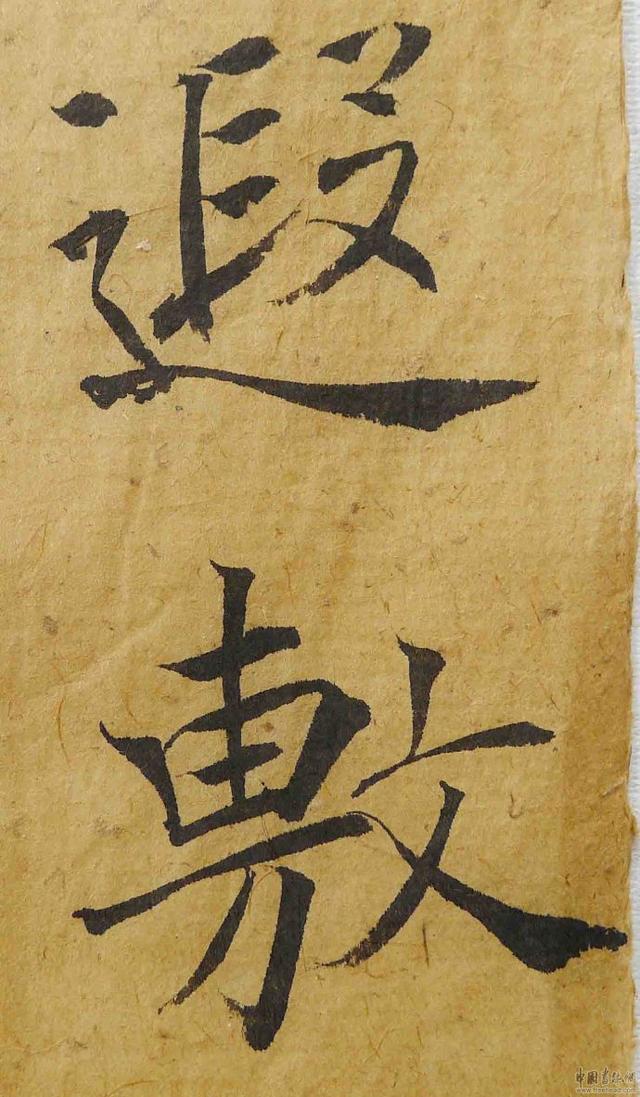 遐敷
中国书法网